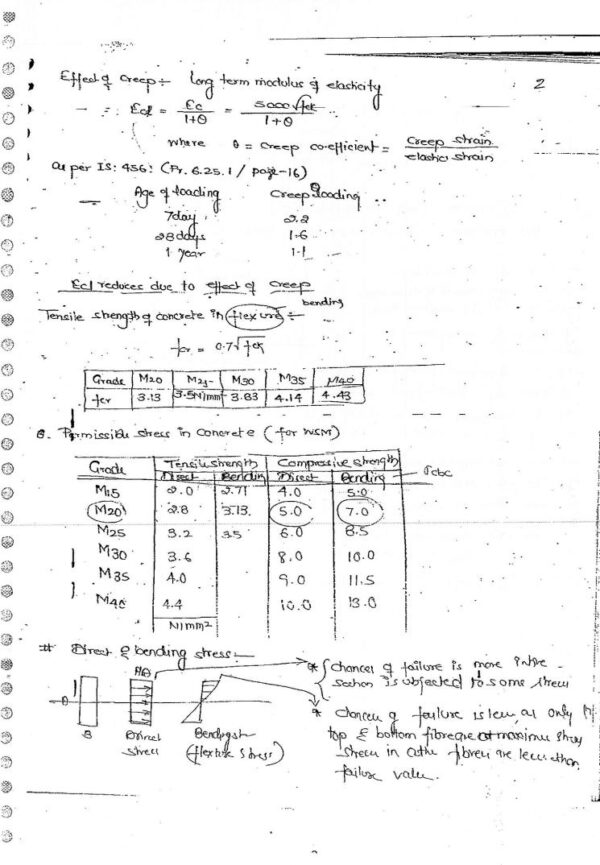 2
Effect of Creep :- long term modulus of elasticity
∴ Ecl = Ec / 1+θ = 5000√fck / 1+θ
where θ = creep co-efficient = Creep strain / elastic strain
as per IS: 456: (Pr. 6.25.1 / page-16)
Age of loading Creep @ loading
7day 2.2
28 days 1.6
1 year 1.1
Ecl reduces due to effect of creep
bending
Tensile strength of concrete in flexure :-
fcr = 0.7√fck
Grade M20 M25 M30 M35 M40
fcr 3.13 3.5N/mm² 3.83 4.14 4.43
6. Permissible stress in concrete (for WSM)
Grade Tensile strength Compressive strength
Direct Bending Direct Bending σcbc
M15 2.0 2.71 4.0 5.0
M20 2.8 3.13 5.0 7.0
M25 3.2 3.5 6.0 8.5
M30 3.6 8.0 10.0
M35 4.0 9.0 11.5
M40 4.4 10.0 13.0
N/mm2
# Direct & bending stress :-
* chances of failure is more
section is subjected to same stress
* chances of failure is less, as only
top & bottom fibre are at maximum
stress in other fibres are less than
failure value.
B
Direct stress
(flexure stress)